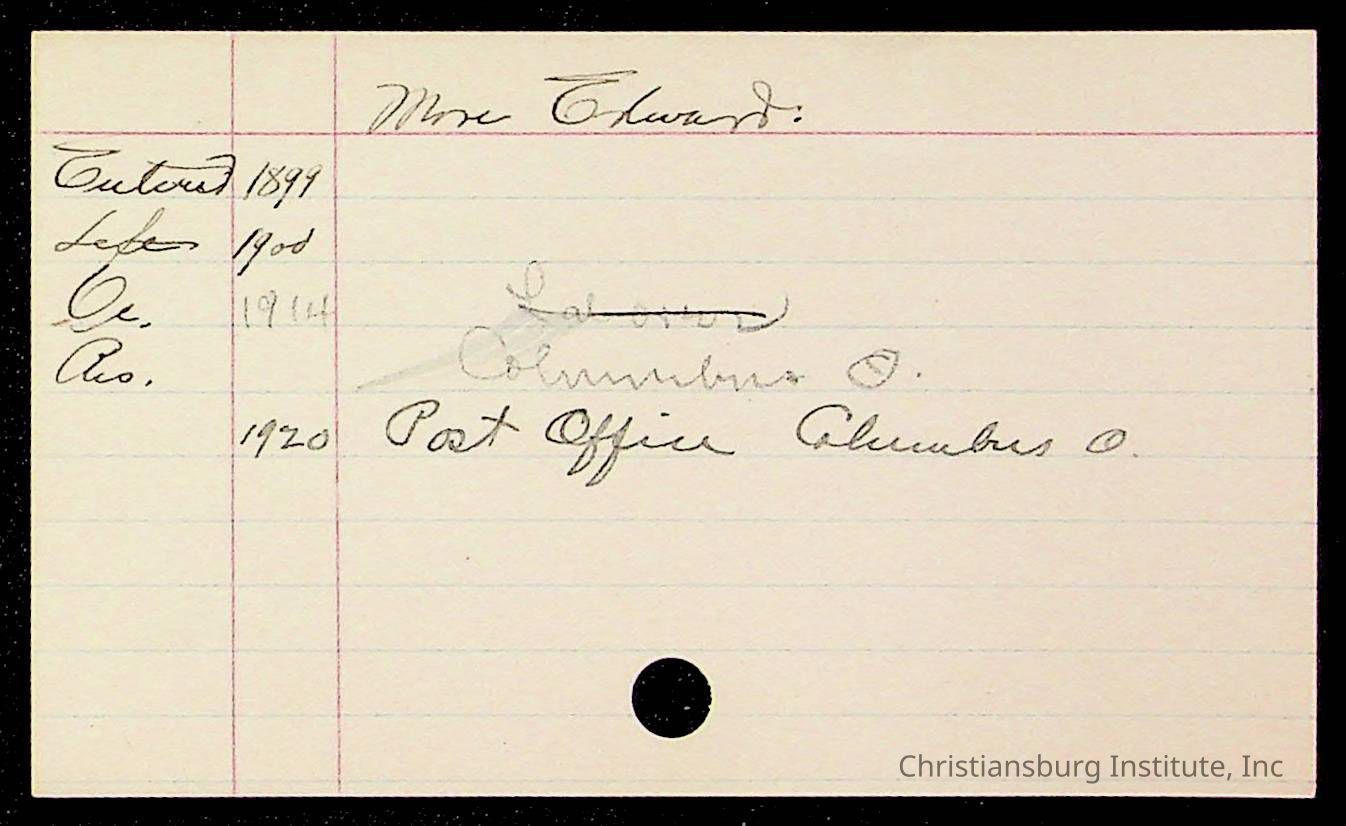 More Edward.
Entered 1899
Left 1900
Oc. 1914
Res. Columbus O.
1920 Post Office Columbus O.
Christiansburg Institute, Inc